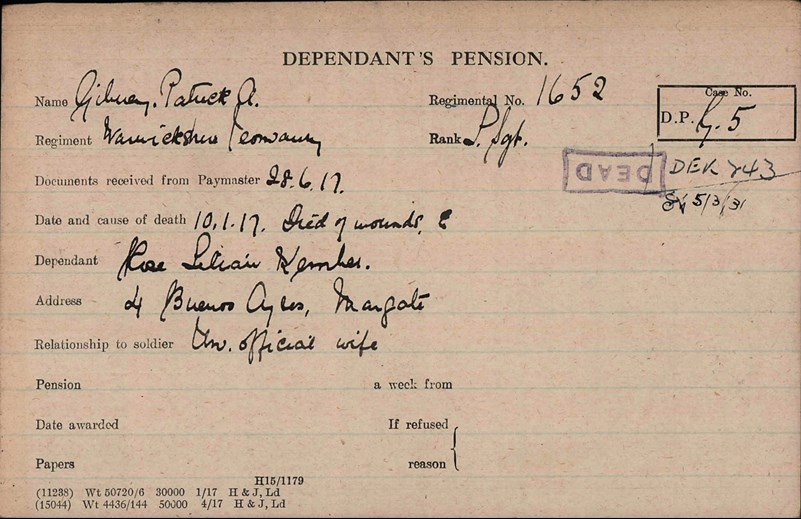 DEPENDANT'S PENSION.
Name Gibney. Patrick A. Regimental No. 1652 Case No.
Regiment Warwickshire Yeomanry Rank L. Sgt. D.P. G. 5
DEAD DEK 243
Documents received from Paymaster 28.6.17.
5/3/31
Date and cause of death 10.1.17. Died of wounds, E
Dependant Rose Lilian
Address 4 Buenos Ayres, Margate
Relationship to soldier Un. official wife
Pension a week from
Date awarded If refused
Papers reason
H15/1179
(11238) Wt 50720/6 30000 1/17 H & J, Ld
(15044) Wt 4436/144 50000 4/17 H & J, Ld